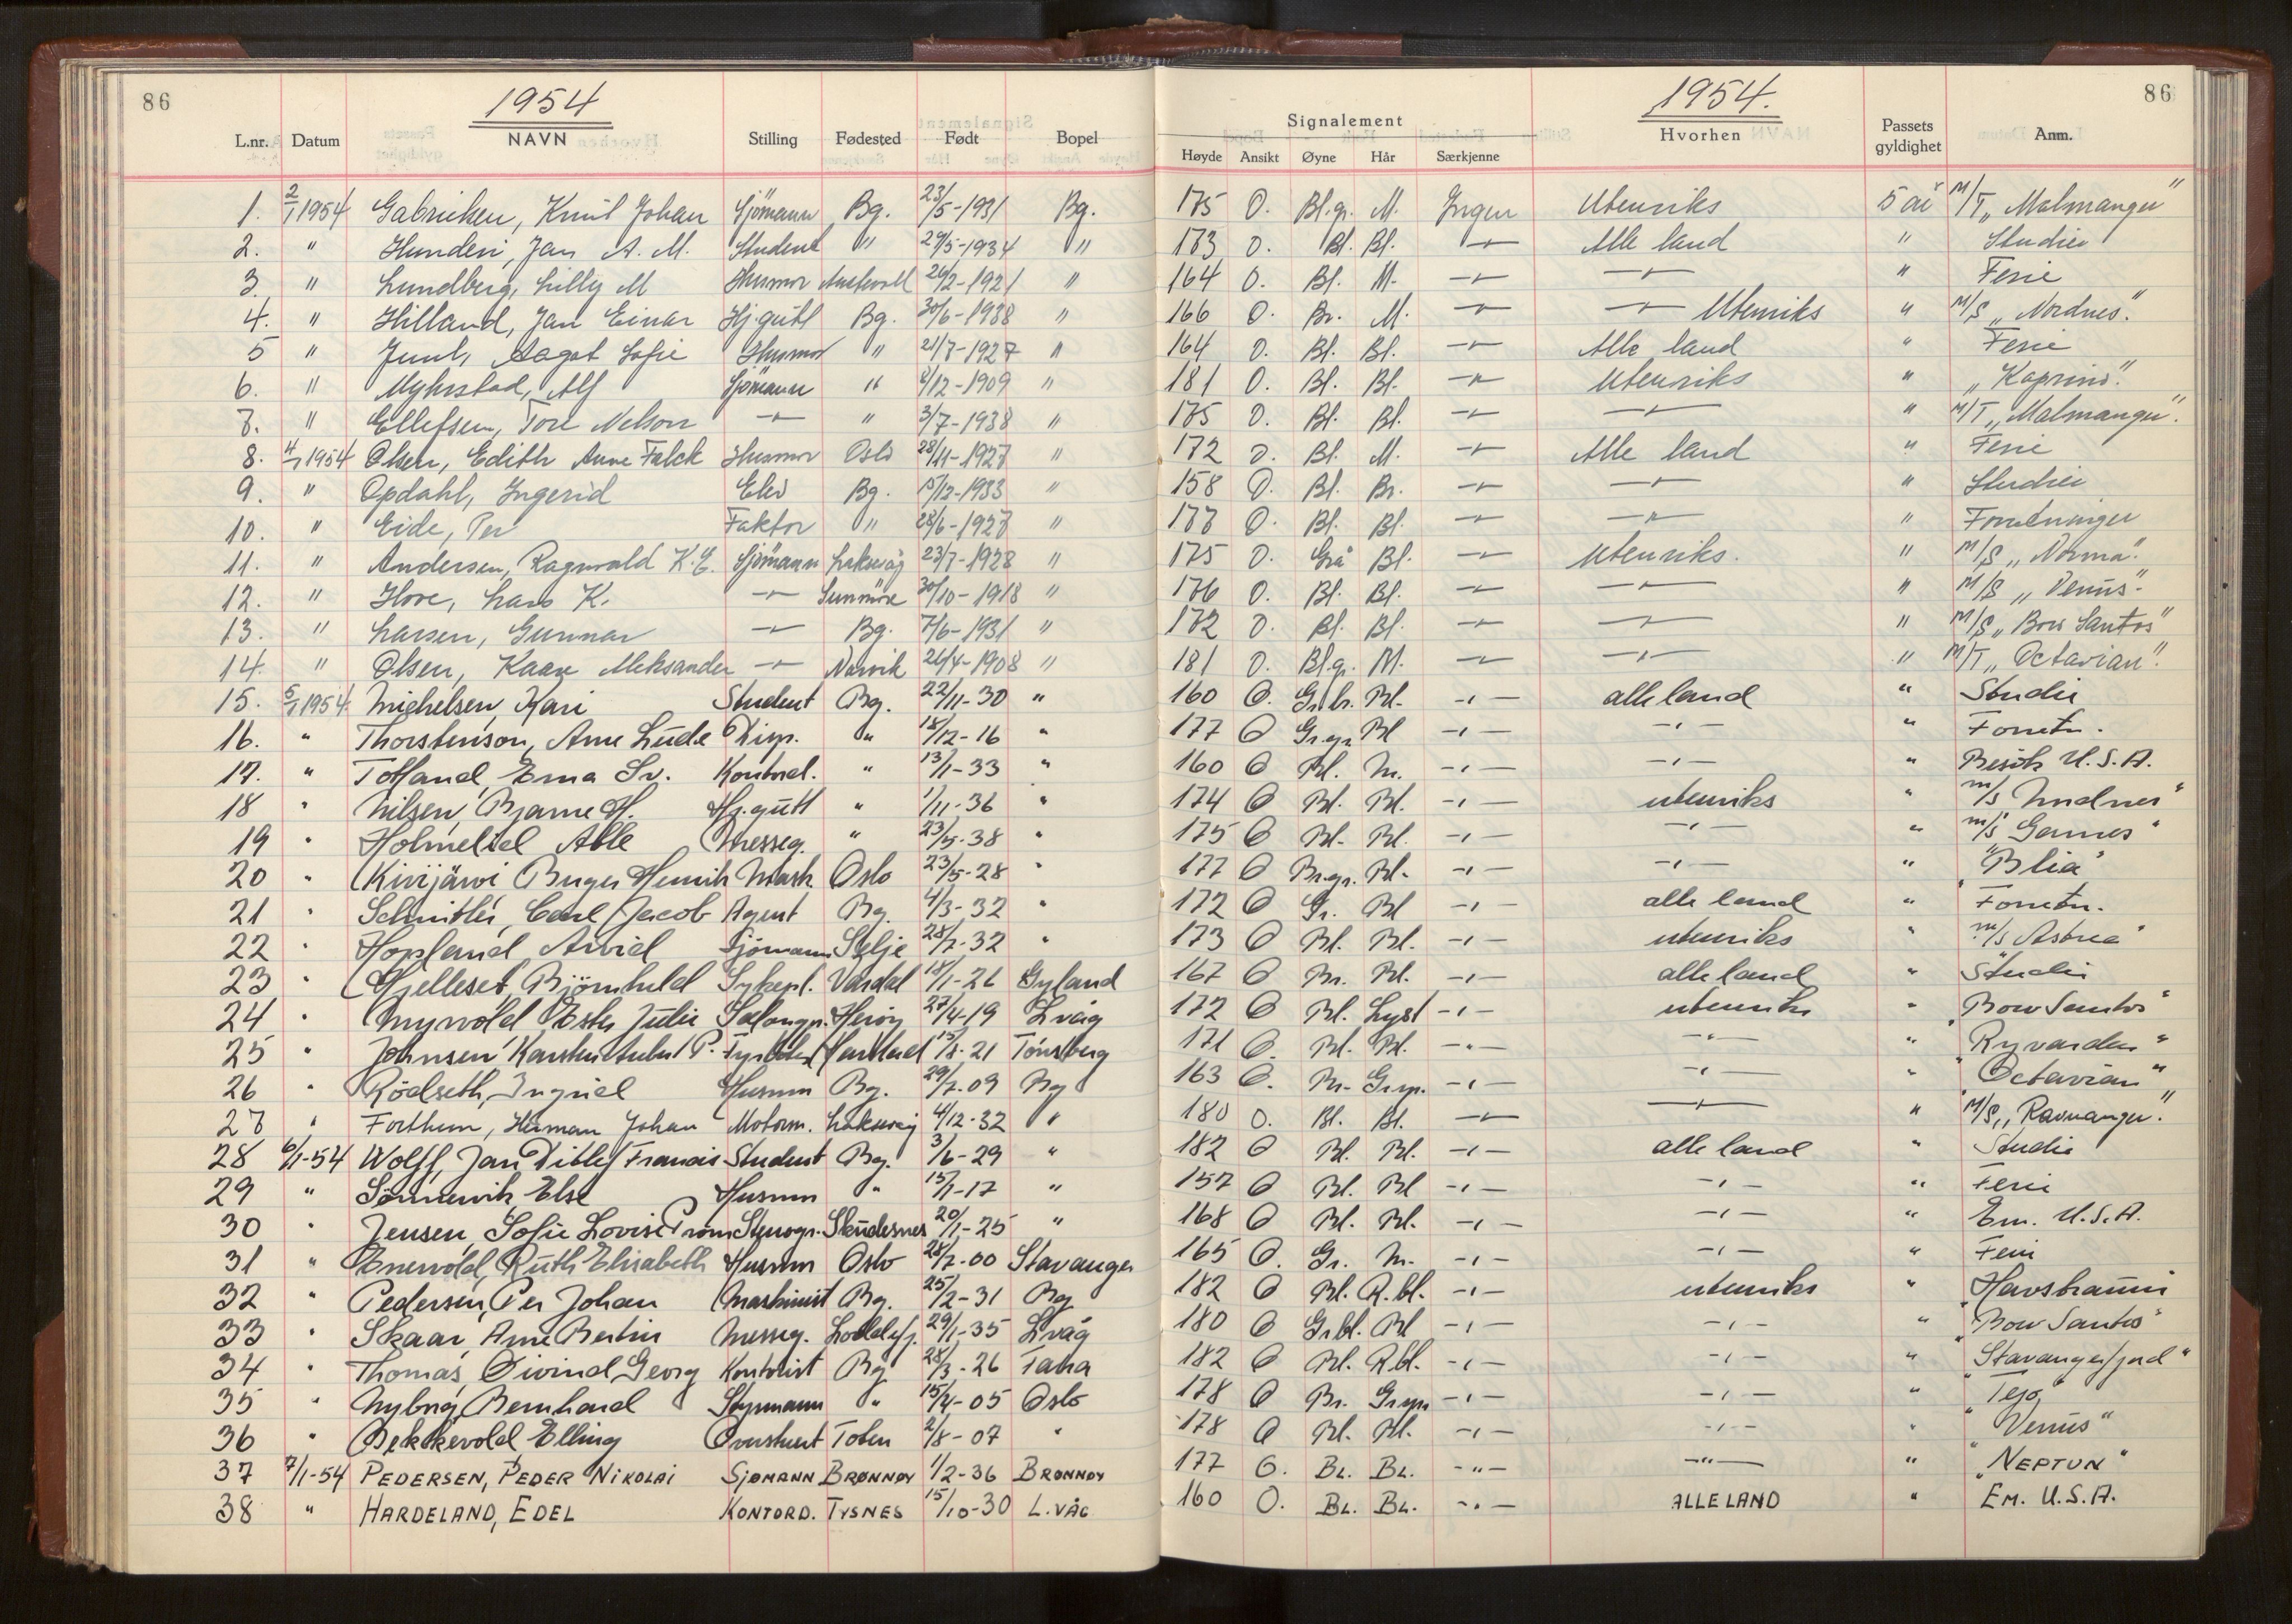 86 1954 1954. 86
L.nr. Datum NAVN Stilling Fødested Født Bopel Signalement Høyde Ansikt Øyne Hår Særkjenne Hvorhen Passets gyldighet Anm.
1. 2/1 1954 Gabrielsen, Knut Johan Sjömann Bg. 23/5-1931 Bg. 175 O. Bl.gr. M. Ingen Utenriks 5 år M/T „Malmanger"
2. " Jan A. M. Student " 29/5-1934 " 173 O. Bl. Bl. -"- Alle land " Studier
3. " Lundberg, Lilly M Husmor Austevoll 1921 " 164 O. Bl. M. -"- -"- " Ferie
4. " Hilland, Jan Einar Hj.gutt Bg. 30/6-1938 " 166 O. Br. M. -"- -"- Utenriks " M/S „Nordnes".
5 " Juul, Aagot Sofie Husmor " 21/7-1927 " 164 O. Bl. Bl. -"- Alle land " Ferie
6. " Myhrstad, Alf Sjömann " /12-1909 " 181 O. Bl. Bl. -"- Utenriks " „Kaprino".
7. " Ellefsen, Tore Nelson -"- " 3/7-1938 " 175 O. Bl. Bl. -"- -"- " M/T „Malmanger".
8. 4/1 1954 Olsen, Edith Anne Falck Husmor Oslo 28/11-1927 " 172 O. Bl. M. -"- Alle land " Ferie
9. " Opdahl, Ingerid Elev Bg. 15/12-1933 " 158 O. Bl. Br. -"- -"- " Studier
10. " Eide, Per Faktor " 28/6-1927 " 177 O. Bl. Bl. -"- -"- " Forretninger
11. " Andersen, Ragnvald K. E. Sjömann Laksevåg 23/7-1928 " 175 O. Grå Bl. -"- Utenriks. " M/S „Norma".
12. " Hove, Lars K. -"- Sunnmöre 30/10-1918 " 176 O. Bl. Bl. -"- -"- " M/S „Venus".
13. " Larsen, Gunnar -"- Bg. 7/6-1931 " 172 O. Bl. Bl. -"- -"- " M/S „Bow Santos"
14. " Olsen, Kaare Aleksander -"- Narvik 26/4-1908 " 181 O. Bl.gr. M. -"- -"- " M/T „Octavian".
15. 5/1 1954 Michelsen, Kari Student Bg. 22/11-30 " 160 O. Gr.br. Bl. -"- alle land " Studie
16. " Thorstenson, Arne Lude Disp. " 18/12-16 " 177 O Gr.gr. Bl -"- -"- " Forretn.
17. " Totland, Erna Sv. Kontord. " 13/1-33 " 160 O Bl. M. -"- -"- " Besök U.S.A.
18 " Nilsen, Bjarne H. Hj.gutt " 1/11-36 " 174 O Bl. Bl. -"- utenriks " m/s
19 " Atle Messeg. " 23/5-38 " 175 O Bl. Bl. -"- -"- " m/s Garnes"
20 " Kivijärvi Henrik Mask Oslo 23/5-28 " 177 O Br.gr. Bl. -"- -"- " "Blia"
21 " Schnitler, Carl Jacob Agent Bg. 4/3-32 " 172 O Gr. Bl -"- alle land " Forretn.
22 " Hopland, Arvid Sjömann Selje 28/7-32 " 173 O Bl. Bl. -"- utenriks " m/s Astrea"
23 " Hjelleset, Björnhild Sykepl. Vardal 18/1-26 Gyland 167 O Br. Bl. -"- alle land " Studie
24 " Myrvold, Ester Julie Salongp. Heröy 27/4-19 L.våg 172 O Bl. Lyst -"- utenriks " „Bow Santos"
25 " Johnsen, Karsten P. 21 Tönsberg 171 O. Bl. Bl. -"- -"- " „Ryvarden"
26 " Rödseth, Ingrid Husmor Bg. 29/7-09 Bg 163 O. Br. Gr.spr. -"- -"- " „Octavian"
27 " Forthun, Herman Johan Motorm. Laksevåg 4/12-32 " 180 O. Bl. Bl. -"- -"- " M/S „Ravnanger".
28 6/1-54 Wolff, Jan Ditlef Francis Student Bg. 3/6-29 " 182 O Bl. Bl. -"- alle land " Studie
29 " Sönnervik, Else Husmor " 15/1-17 " 157 O Bl. Bl -"- -"- " Ferie
30 " Jensen, Sofie Lovise Stenogr. Skudesnes 20/1-25 " 168 O Bl. Bl. -"- -"- " Em. U.S.A.
31 " Enevold, Ruth Elisabeth Husmor Oslo 28/7-00 Stavanger 165 O. Gr. M. -"- -"- " Ferie
32 " Pedersen, Per Johan Maskinist Bg. 25/2-31 Bg 182 O Bl. R.bl. -"- utenriks "
33 " Skaar, Arne Bertin Messeg. Loddefj. 29/1-35 L.våg 180 O Gr.bl. Bl -"- -"- " „Bow Santos"
34 " Thomas, Öivind Georg Kontorist Bg 28/3-26 Fana 182 O Bl. R.bl. -"- -"- " „Stavangerfjord"
35 " Nyborg, Bernhard Styrmann " 15/4-05 Oslo 178 O Br. Gr.spr. -"- -"- " „Tejo"
36 " Bekkevold, Elling Overstuert Toten 2/8-07 " 178 O Bl. Bl. -"- -"- " „Venus"
37 7/1-54 PEDERSEN, PEDER NIKOLAI SJØMANN BRØNNØY 1/2-36 BRØNNØY 177 O. BL. BL. -"- -"- " „NEPTUN"
38 " HARDELAND, EDEL KONTORD. TYSNES 15/10-30 L.VÅG 160 O. BL. BL. -"- ALLE LAND " EM. U.S.A.